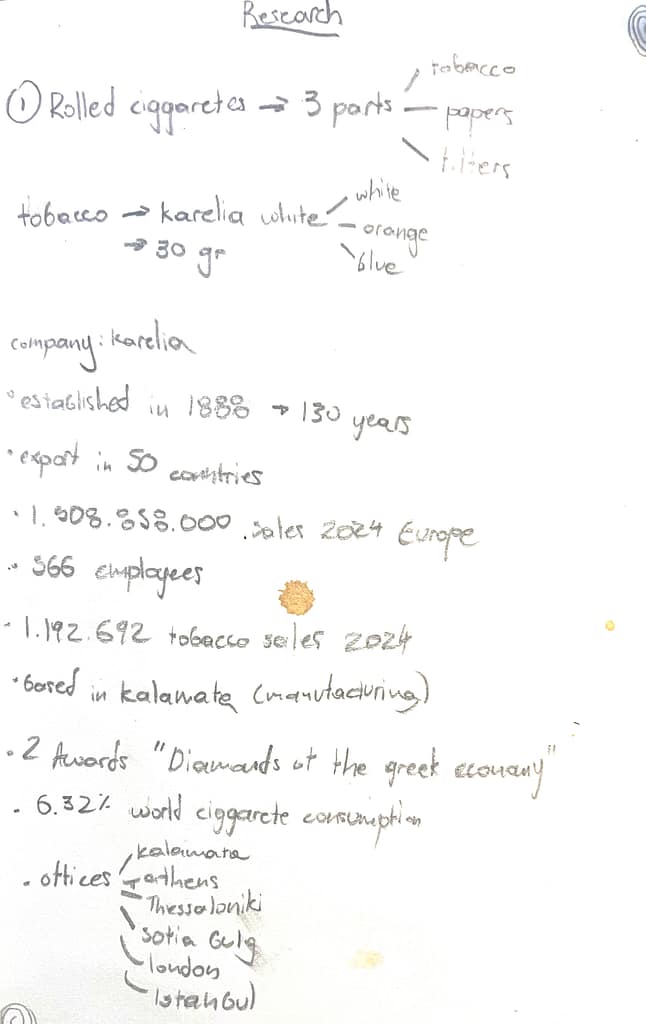 Research
① Rolled ciggaretes → 3 parts
tobacco
papers
filters
tobacco → karelia white
→ 30 gr
white
orange
blue
company: karelia
• established in 1888 → 130 years
• export in 50 countries
• 1.508.858.000 sales 2024 Europe
• 566 employees
• 1.192.692 tobacco sales 2024
• based in kalamata (manufacturing)
• 2 Awards "Diamonds of the greek economy"
• 6.32% world ciggarete consumption
• offices
kalamata
athens
Thessaloniki
sofia Bulg
london
Istanbul